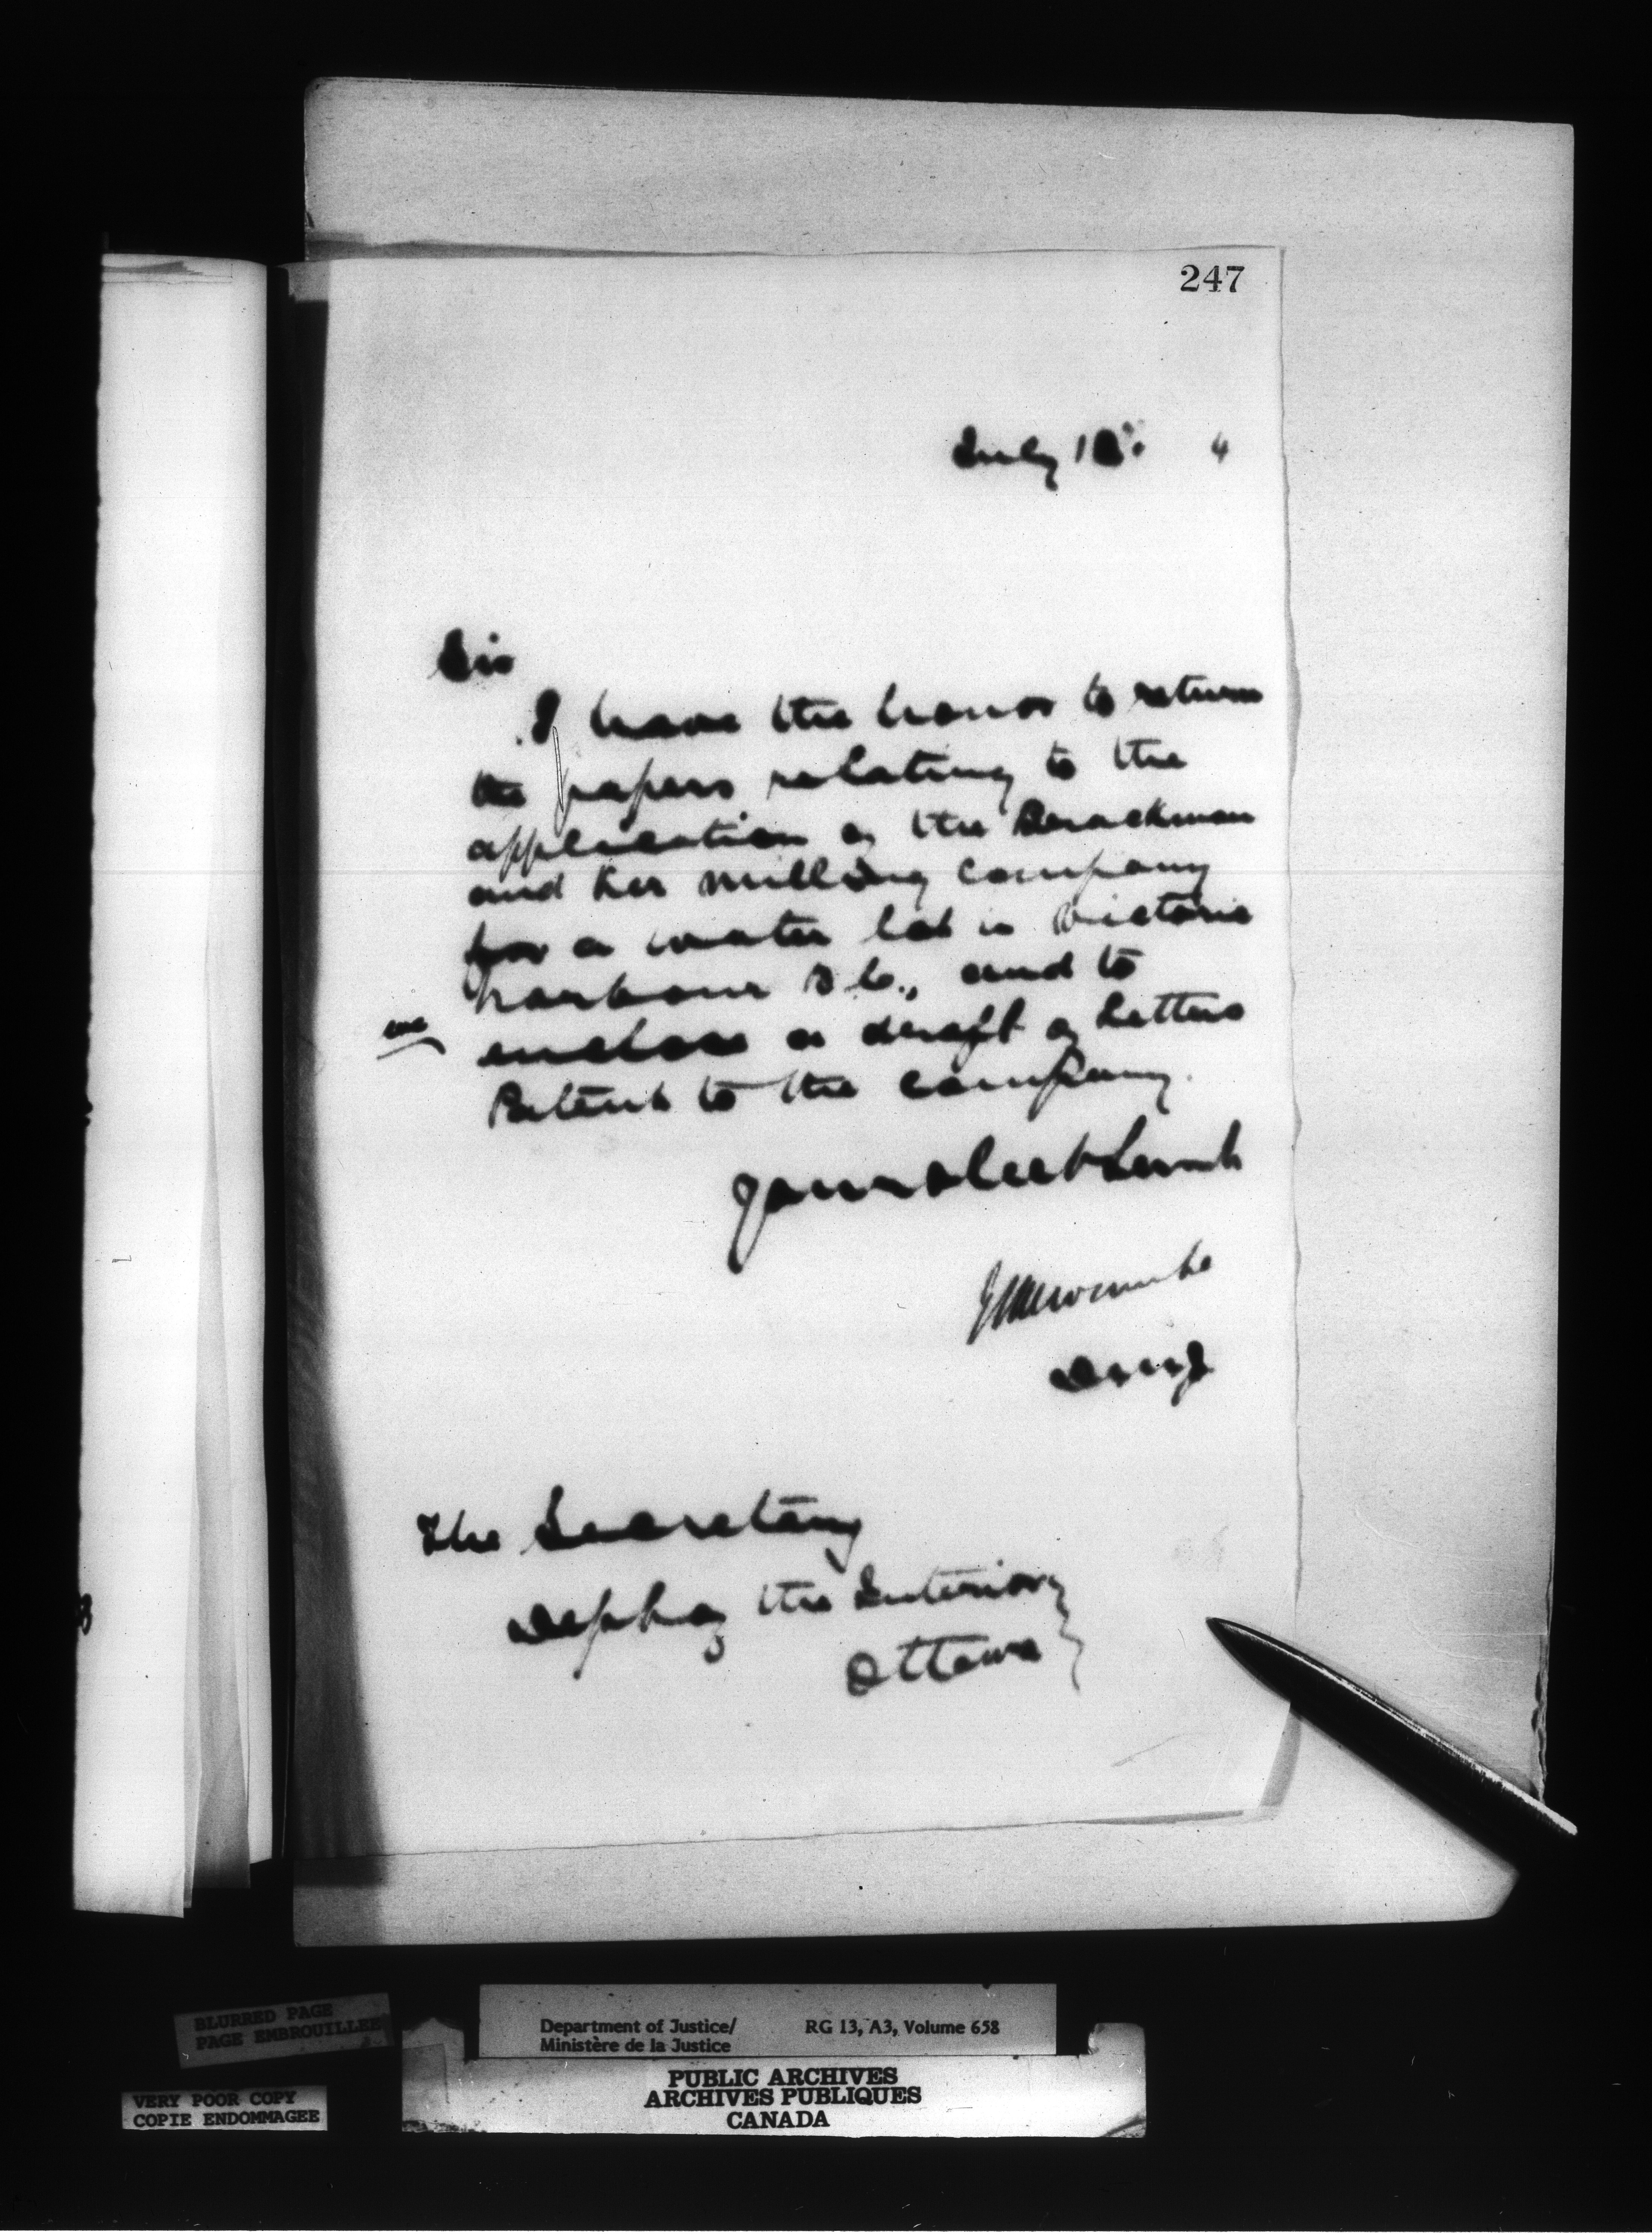 247
July 18. 4
Sir
I have the honor to return
the papers relating to the
application of the Brackman
and Ker Milling Company
for a water lot in Victoria
harbour B.C., and to
enc
enclose a draft of Letters
Patent to the company.
Your obedt Servt
E L Newcombe
D.M.J.
The Secretary
Dept of the Interior
Ottawa
BLURRED PAGE
PAGE EMBROUILLEE
VERY POOR COPY
COPIE ENDOMMAGEE
Department of Justice/ RG 13, A3, Volume 658
Ministère de la Justice
PUBLIC ARCHIVES
ARCHIVES PUBLIQUES
CANADA